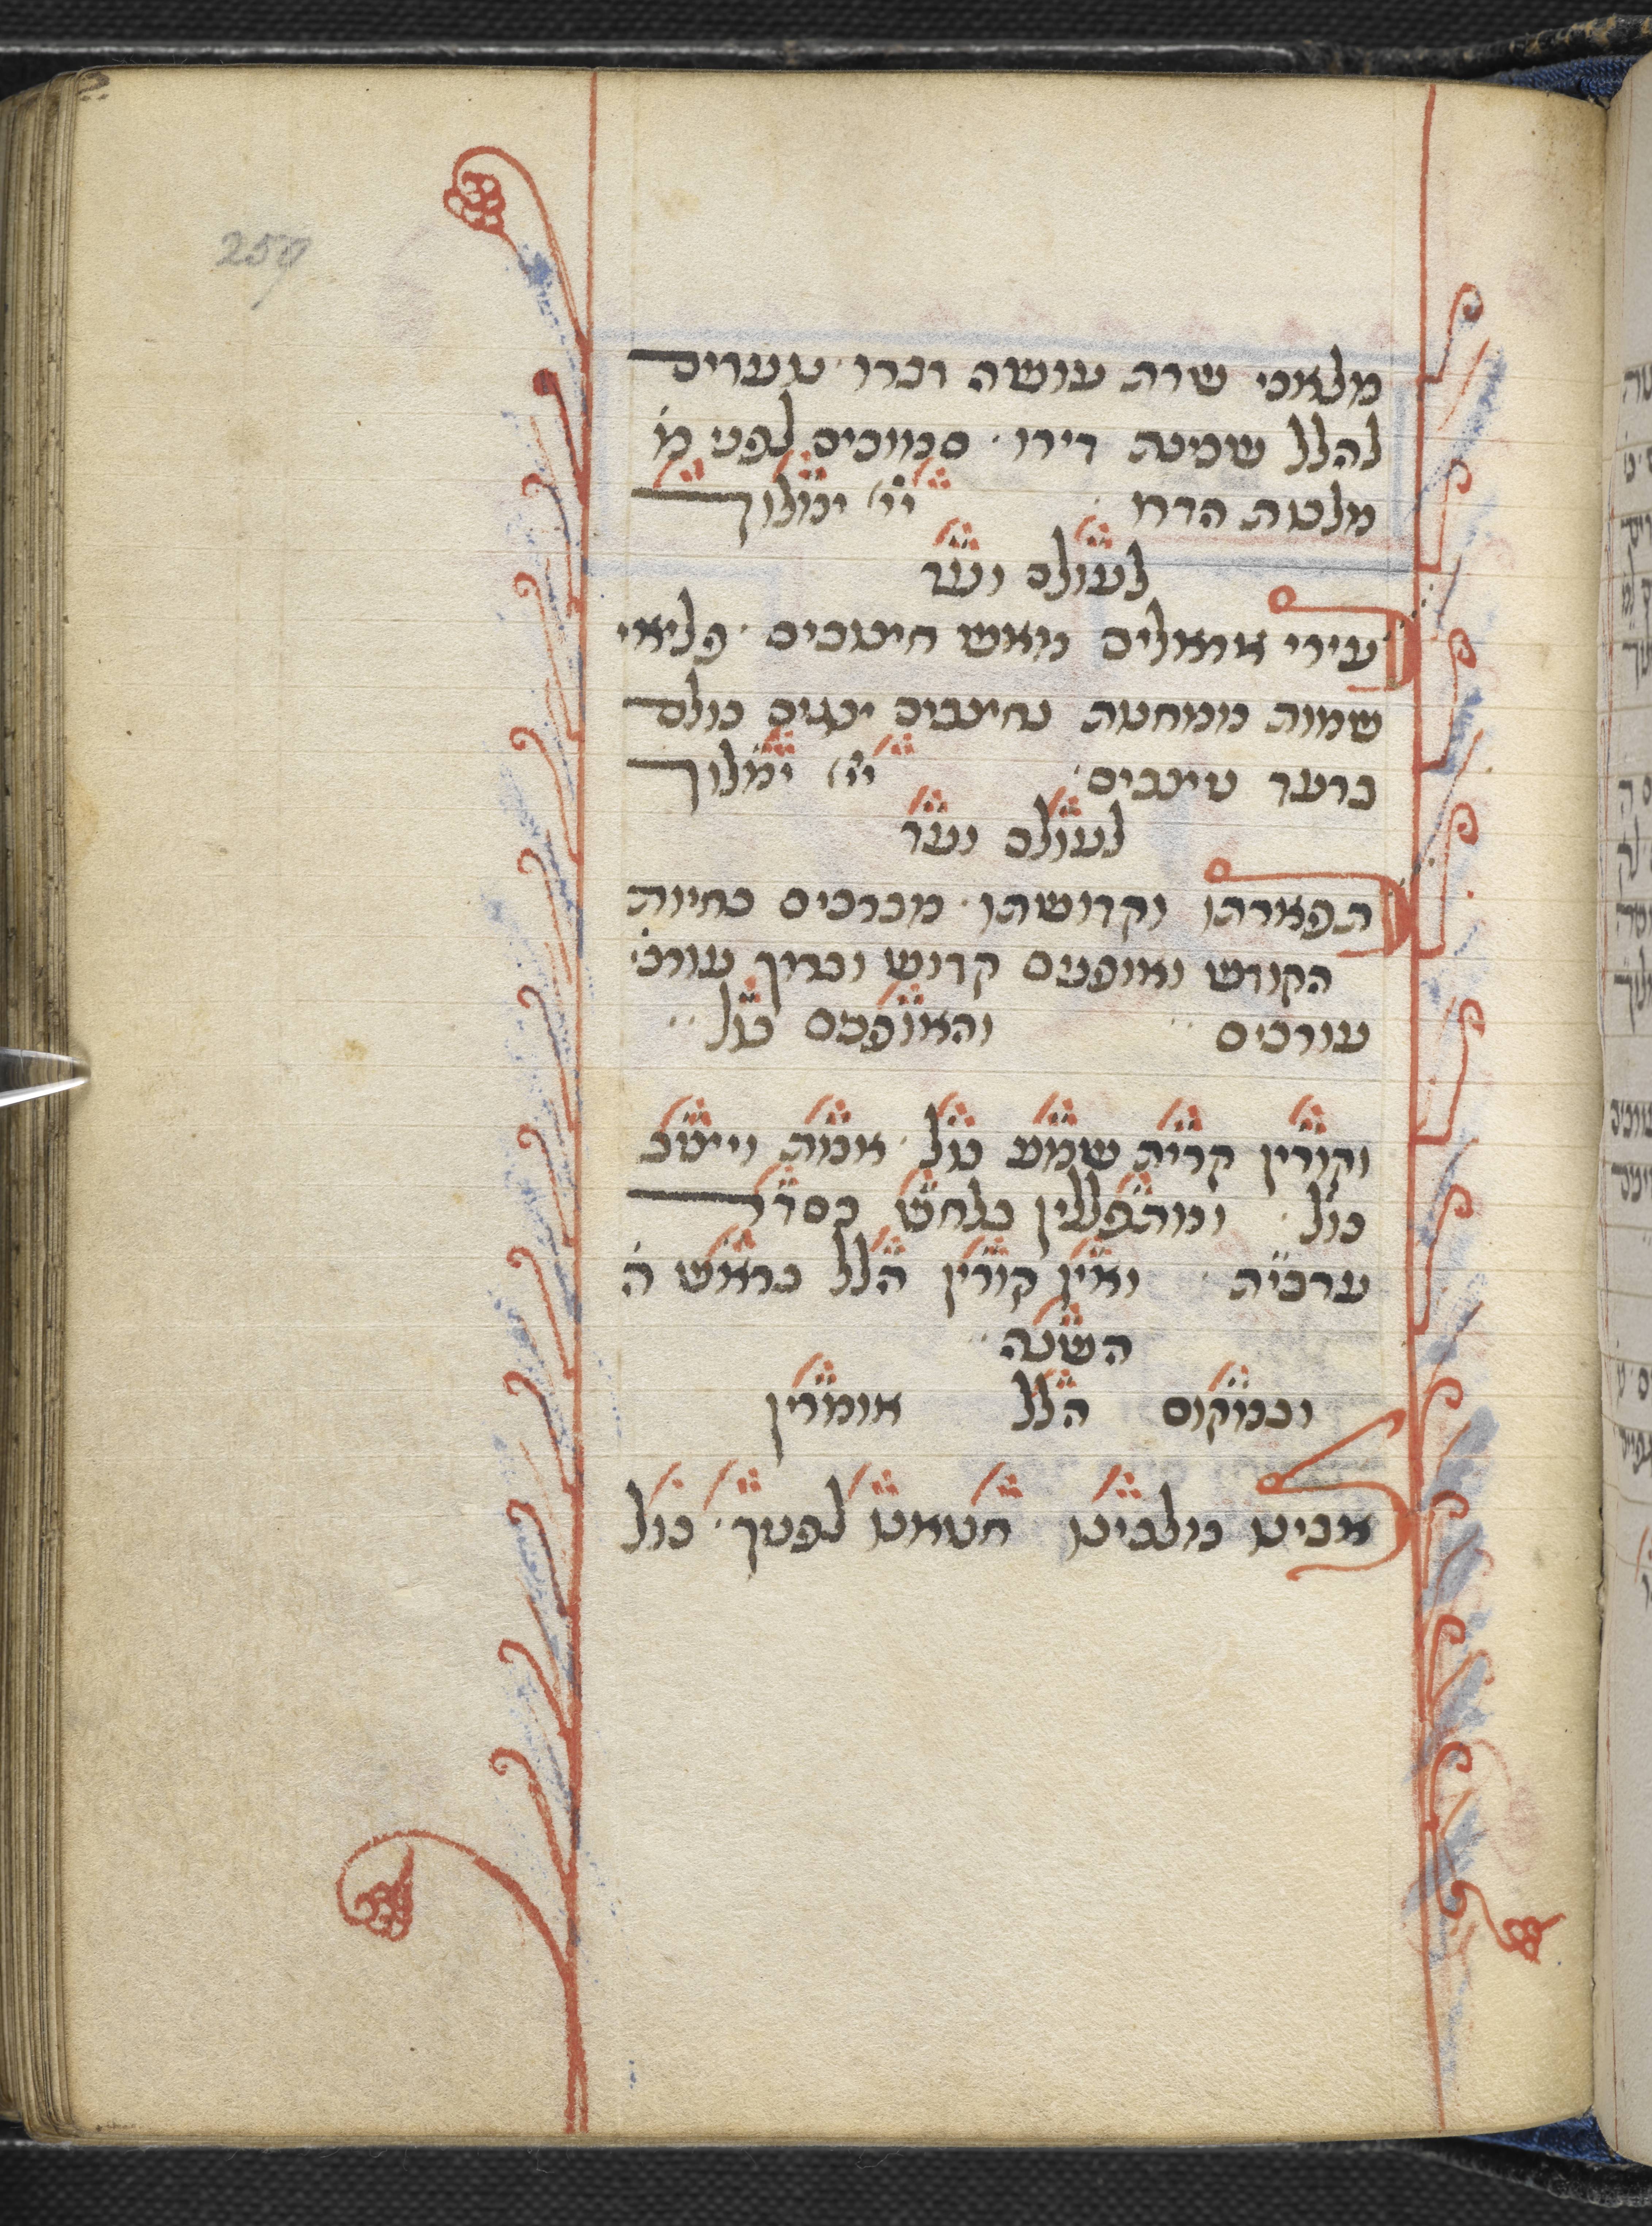 259
מלאכי שרת עושה וכרו׳ נערים
להלל שמינה דירו׳ סמוכים לפני מ׳
מלכות הדרו יי׳ ימלוך
לעולם ועד
עירי אראלים מאש חצובים׳ פליאי
שמות ממחנות נחצבים יפגים כולם
ברעד ניצבים׳ יי׳ ימלוך
לעולם ועד
תפארתו וקדושתו׳ מברכים כחיות
הקודש ואופנים קדוש וברוך עורכ׳
עורכים׳ והאופנים כול׳
וקורין קרית שמע כול׳ אמת וייציב
כול׳ ומתפללין בלחש כסדר
ערבית׳ ואין קורין הלל בראש ה׳
השנה׳
ובמקום הלל אומרין
אבינו מלכינו חטאנו לפניך׳ כול׳